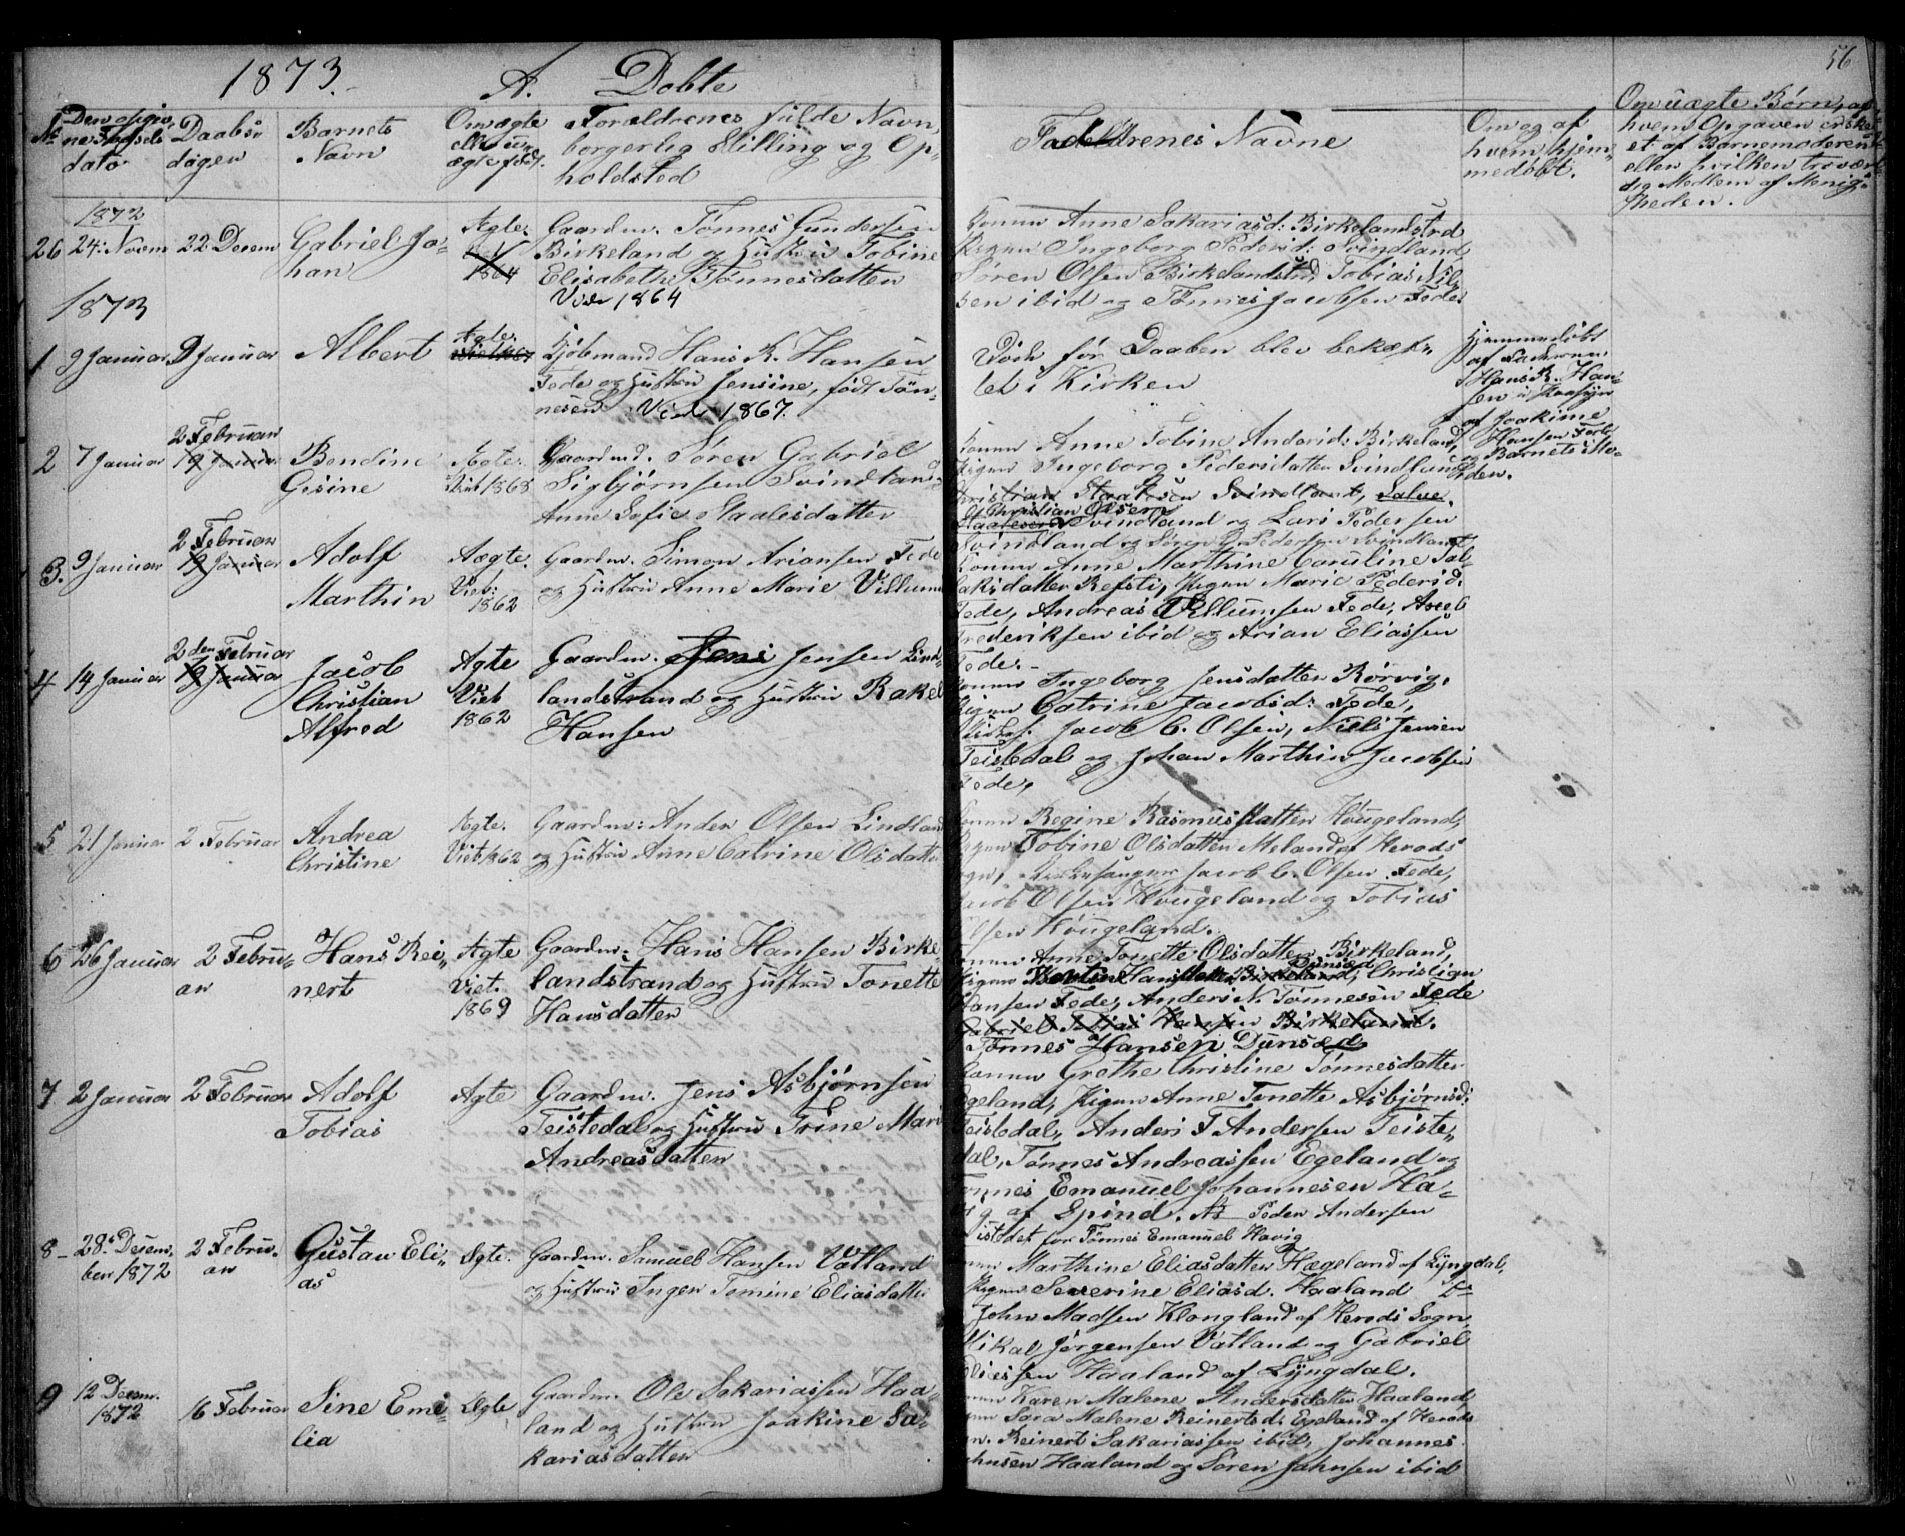 1873.
A. Døbte
56
No
Den opgiv,
ne Fødsels
dato
Daabs,
dagen
Barnets
Navn
Om ægte
eller u,
ægte født.
Forældrenes fulde Navn,
borgerlig Stilling og Op,
holdsted
Faddrenes Navne
Om og af
hvem hjem,
medøbt.
Om uægte Børn, af
hvem Opgaven er sket
af Barnemoderen
eller hvilken troværd
dig Medlem af Menig,
heden.
1872
26 24: Novem 22 Decem Gabriel Jo-
han
Ægte.
1864
Gaardm. Tønnes Gundersen
Birkeland og Hustru Tobine
Elisabeth Tønnesdatter
Viet 1864
Konen Anne Sakariasd: Birkelandstrd
Pigen Ingeborg Pedersd: Svindland
Søren Olsen Birkelandstrd, Tobias Nil,
sen ibid og Tønnes Jacobsen Fede
1873
1 9 Januar 9 Januar Albert
Ægte.
Kjøbmand Hans R. Hansen
Fede og Hustru Jensine, født Tøn,
nesen Viet 1867.
Død før Daaben blev bekræf,
tet i Kirken
Hjemmedøbt
af Faderen,
Hans R. Han-
sen i Paasyn
af Joakime
Hansen Fede
og Barnets Mo-
der.
2 7 Januar
2 Februar
19 Januar
Bendine
Gesine
Ægte.
Viet 1868
Gaardmd. Søren Gabriel
Sigbjørnsen Svindland og
Anne Sofie Staalesdatter
Konen Anne Tobine Andersd: Birkeland,
Pigen Ingeborg Pedersdatter Svindland
Christian Staalesen Svindland, Salve
Christian Olsen
Staalesen Svindland og Lars Pedersen
Svindland og Søren Pedersen Svindland
3. 9 Januar
2 Februar
19 Januar
Adolf
Marthin
Aægte.
Viet:
1862
Gaardm. Simon Ariansen Fede
og Hustru Anne Marie Villums
Konen Anne Marthine Caroline Sal-
laksdatter Refsti, Pigen Marie Pedersd.
Fede, Andreas Villumsen Fede, Axel
Frederiksen ibid og Arian Eliassen
Fede.
4 14 Januar
2den Februar
19 Januar
Jacob
Christian
Alfred
Ægte
Viet
1862
Gaardm. Jens Jensen Lind-
landstrand og Hustru Rakel
Hansen
Konen Ingeborg Jensdatter Rørvig,
Pigen Catrine Jacobsd: Fede,
Kirkes. Jacob C. Olsen, Niels Jensen
Teistedal og Johan Marthin Jacobsen
Fede,
5 21 Januar 2 Februar Andrea
Christine
Ægte.
Viet 1862
Gaardm: Anders Olsen Lindland
og Hustru Anne Catrine Olsdatter
Konen Regine Rasmusdatter Høugeland,
Pigen Tobine Olsdatter Meland af Herods
Sogn, Kirkesanger Jacob C. Olsen Fede,
Jacob Olsen Høugeland og Tobias
Olsen Høugeland.
6 26 Januar 2 Febru,
ar
Hans Rei,
nert
Ægte
Viet.
1869
Gaardm. Hans Hansen Birke,
landstrand og Hustru Tonette
Hansdatter
Konen Anne Tonette Olsdatter Birkeland,
Pigen Hansdatter Birkeland, Christian
Hansen Fede, Anders N. Tønnesen Fede
Gabriel Tobias Hansen Birkeland.
Tønnes Hansen Dunsæd
7 2 Januar 2 Februar Adolf
Tobias
Ægte
Gaardm. Jens Asbjørnsen
Teistedal og Hustru Trine Marie
Andreasdatter
Konen Grethe Christine Tønnesdatter
Egeland, Pigen Anne Tonette Asbjørnsd:
Teistedal, Anders T Andersen Teiste,
dal, Tønnes Andreassen Egeland og
Tønnes Emanuel Johannesen Ha-
vig af Spind. Peder Andersen
istedet for Tønnes Emanuel Havig
8 28. Decem.
ber 1872
2 Febru,
ar
Gustav Eli,
as
Ægte.
Gaardm. Samuel Hansen Vatland
og Hustru Inger Temine Eliasdatter
Konen Marthine Eliasdatter Hægeland af Lyngdal,
Pigen Severine Eliasd. Haaland Do
John Madsen Klongland af Herods Sogn,
Mikal Jørgensen Vatland og Gabriel
Eliassen Haaland af Lyngdal.
9 12 Decem.
1872
16 Februar Sine Emi-
lia
Ægte
Gaardm. Ole Sakariassen Haa-
land og Hustru Joakine Sa-
kariasdatter
Konen Karen Malene Andersdatter Haaland,
Pigen Sara Malene Reinertsd: Egeland af Herods
Reinert Sakariassen ibid, Johannes
Johnsen Haaland og Søren Johnsen ibid